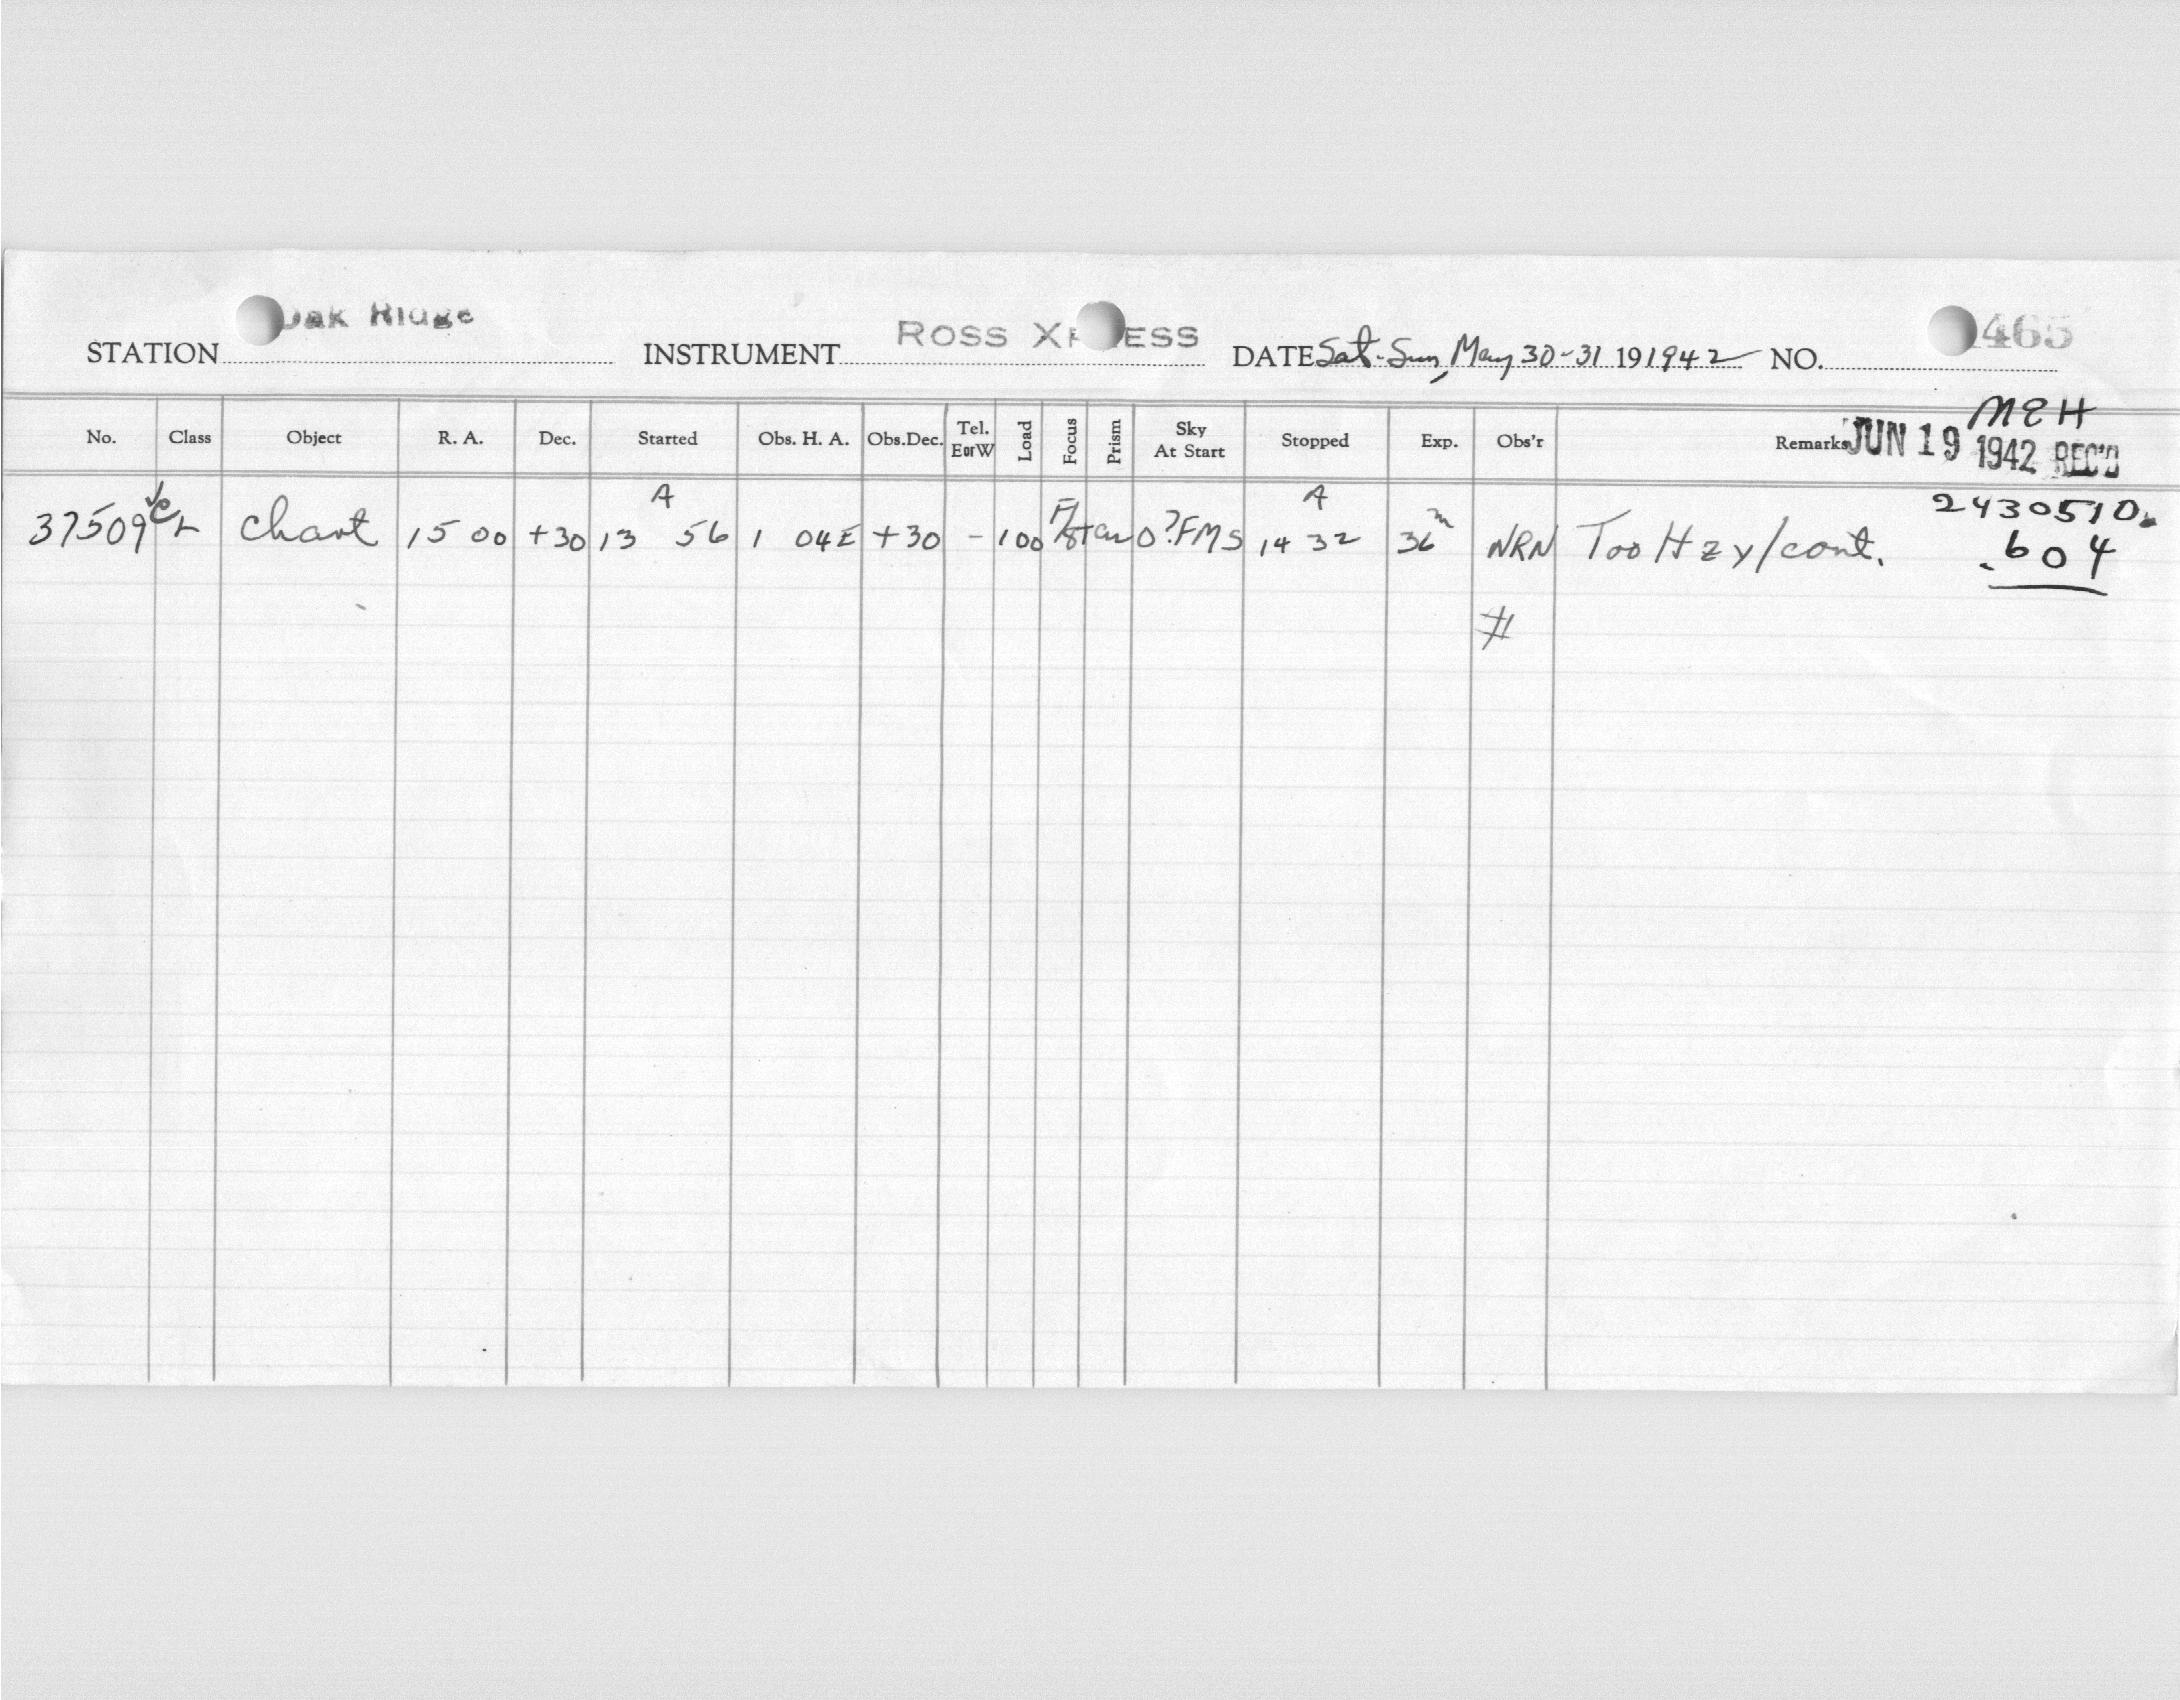 STATION Oak Ridge INSTRUMENT ROSS X ESS DATE Sat-Sun, May 30-31 19 1942 NO. 465
MEH
No. Class Object R. A. Dec. Started Obs. H. A. Obs.Dec. Tel. EorW Load Focus Prism Sky At Start Stopped Exp. Obs'r Remarks JUN 19 1942 REC'D
A A 2430510.
37509 Chart 15 00 +30 13 56 1 04E +30 - 100 0?FMS 14 32 36m NRN Too Hzy/cont. .604
#